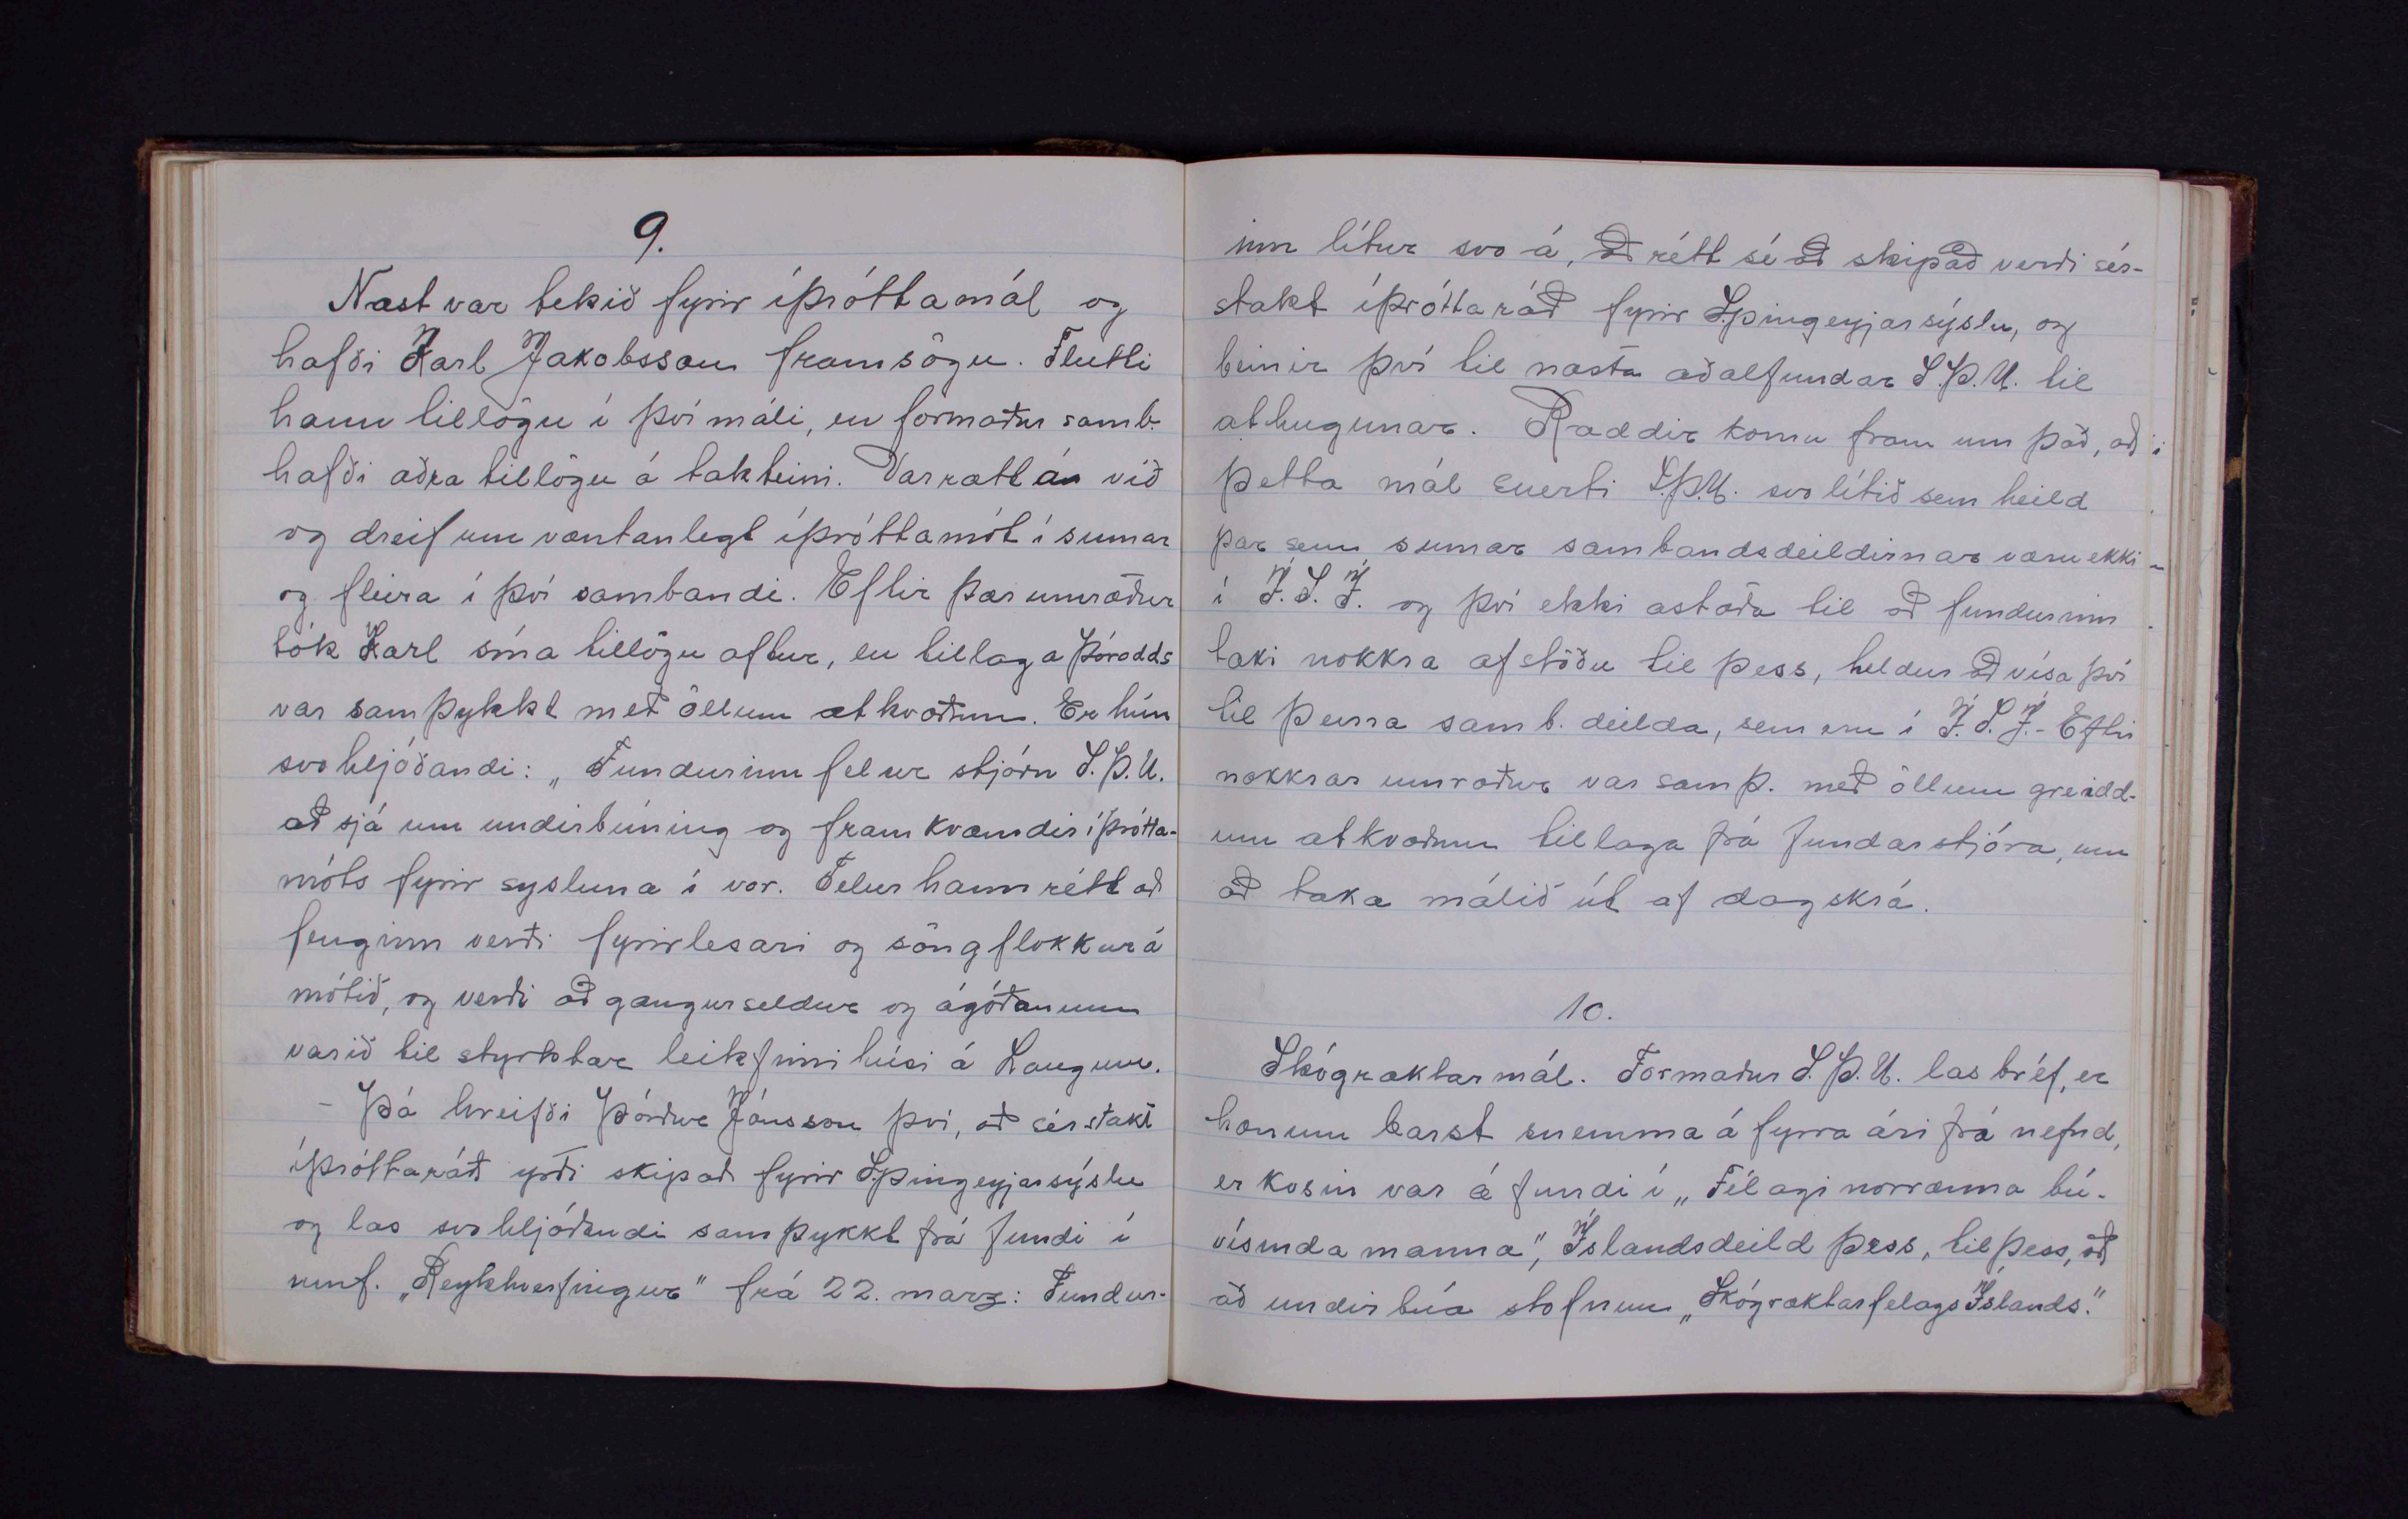 9.
Næst var tekið fyrir íþróttamál og
hafði Karl Jakobsson framsögu. Flutti
hann tillögu í því máli, en formaður samb.
hafði aðra tillögu á takteini. Var rætt um við
og dreif um væntanlegt íþróttamót í sumar
og fleira í því sambandi. Eftir þær umræður
tók Karl sína tillögu aftur, en tillaga Þórodds
var samþykkt með öllum atkvæðum. Er hún
svohljóðandi: „Fundurinn felur stjórn S.Þ.U.
að sjá um undirbúning og framkvæmdir íþrótta-
móts fyrir sysluna í vor. Telur hann rétt að
fenginn verði fyrirlesari og söngflokkur á
mótið, og verði aðgangur seldur og ágóðanum
varið til styrktar leikfimihúsi á Laugum.
– Þá hreifði Þórður Jónsson því, að sérstakt
íþróttaráð yrði skipað fyrir S.þingeyjarsýslu
og las svohljóðandi samþykkt frá fundi í
umf. „Reykhverfingur" frá 22. marz: Fundur-
inn lítur svo á, að rétt sé að skipað verði sér-
stakt íþróttaráð fyrir S.þingeyjarsýslu, og
beinir því til næsta aðalfundar S.Þ.U. til
athugunar. Raddir komu fram um það, að
þetta mál snerti S.Þ.U. svo lítið sem heild
þar sem sumar sambandsdeildirnar væru ekki
í Í.S.Í. og því ekki astæða til að fundurinn
taki nokkra afstöðu til þess, heldur að vísa því
til þeirra samb. deilda, sem eru í Í.S.Í. - Eftir
nokkrar umræður var samþ. með öllum greidd-
um atkvæðum tillaga frá fundarstjóra, um
að taka málið út af dagskrá.
10.
Skógræktarmál. Formaður S.Þ.U. las bréf, er
honum barst snemma á fyrra ári frá nefnd,
er kosin var á fundi í „Félagi norrænna bú-
vísindamanna", Íslandsdeild þess, til þess, að
að undirbúa stofnun „Skógræktarfelags Íslands."